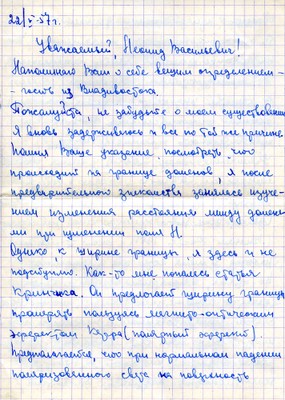 22/V-57г.
Уважаемый, Леонид Васильевич!
Напоминаю Вам о себе вещим определением -
- гость из Владивостока.
Пожалуйста, не забудьте о моем существовании
Я вновь задерживаюсь и все по той же причине.
Помня Ваше указание посмотреть что
происходит на границе доменов, я после
предварительного знакомства занялась изуче-
нием изменения расстояния между домена-
ми при изменении поля Н.
Однако, к ширине границы, я здесь и не
подступила. Как-то мне попалась статья
Кринчика. Он предлагает ширину границы
промерять пользуясь магнито-оптическим
эффектом Керра (полярный эффект).
Предполагается, что при нормальном падении
поляризованного света на поверхность